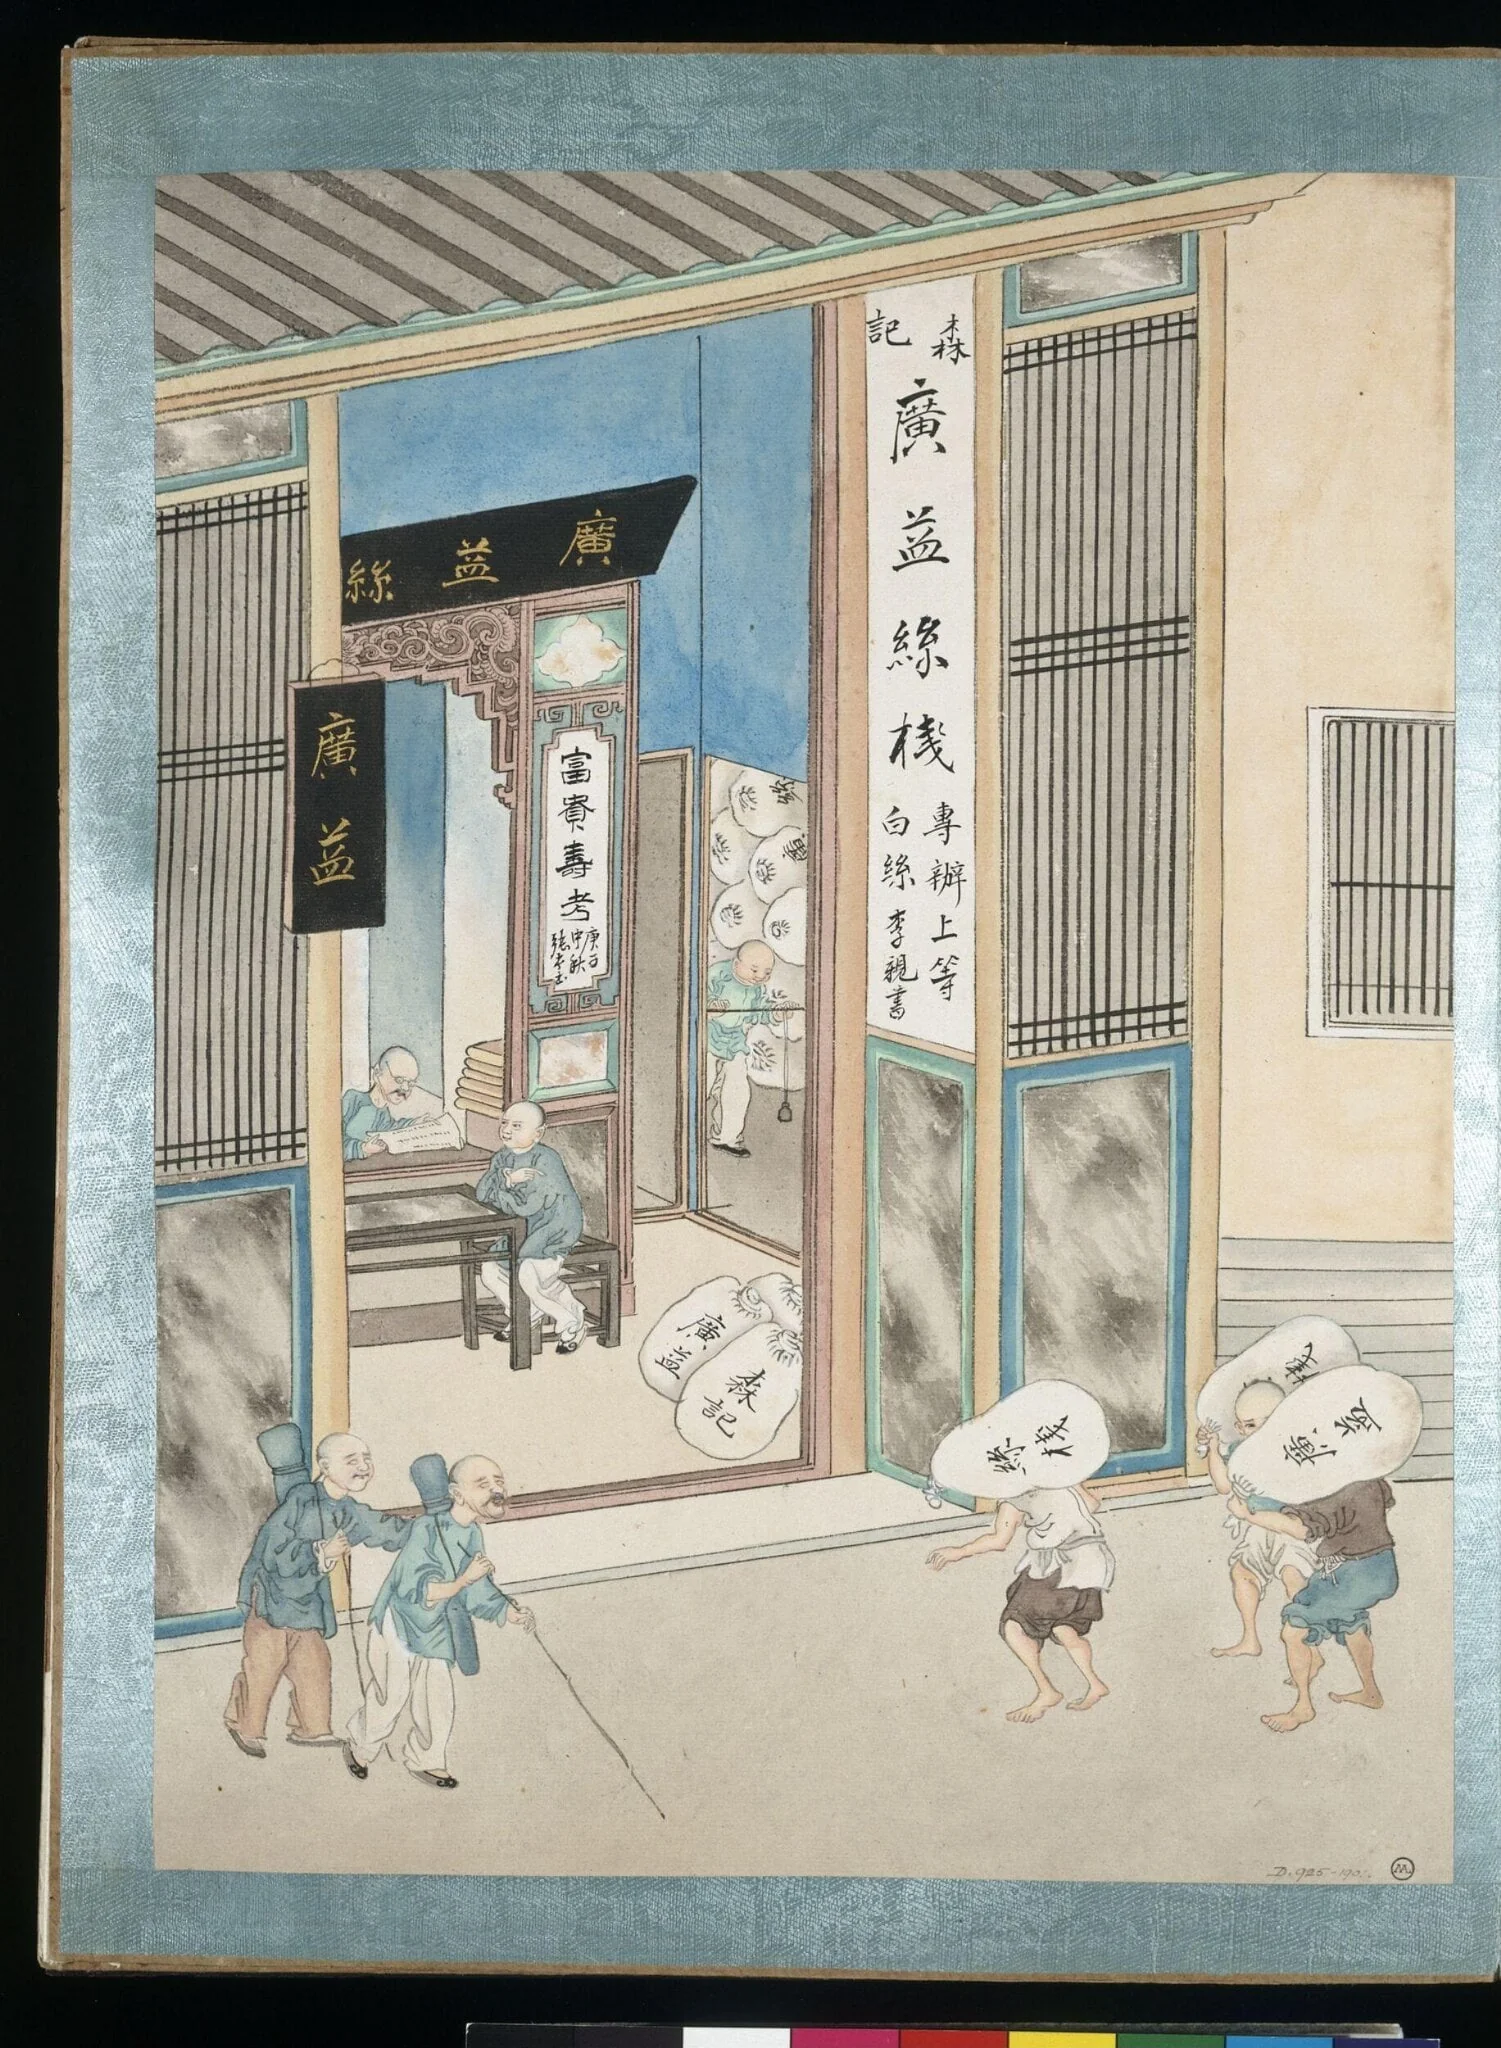 森記
廣益絲棧
專辦上等
白絲
李親書
廣益絲
廣益
富貴壽考
庚子
中秋
廣益
森記
絲棧
棧
D.925-190